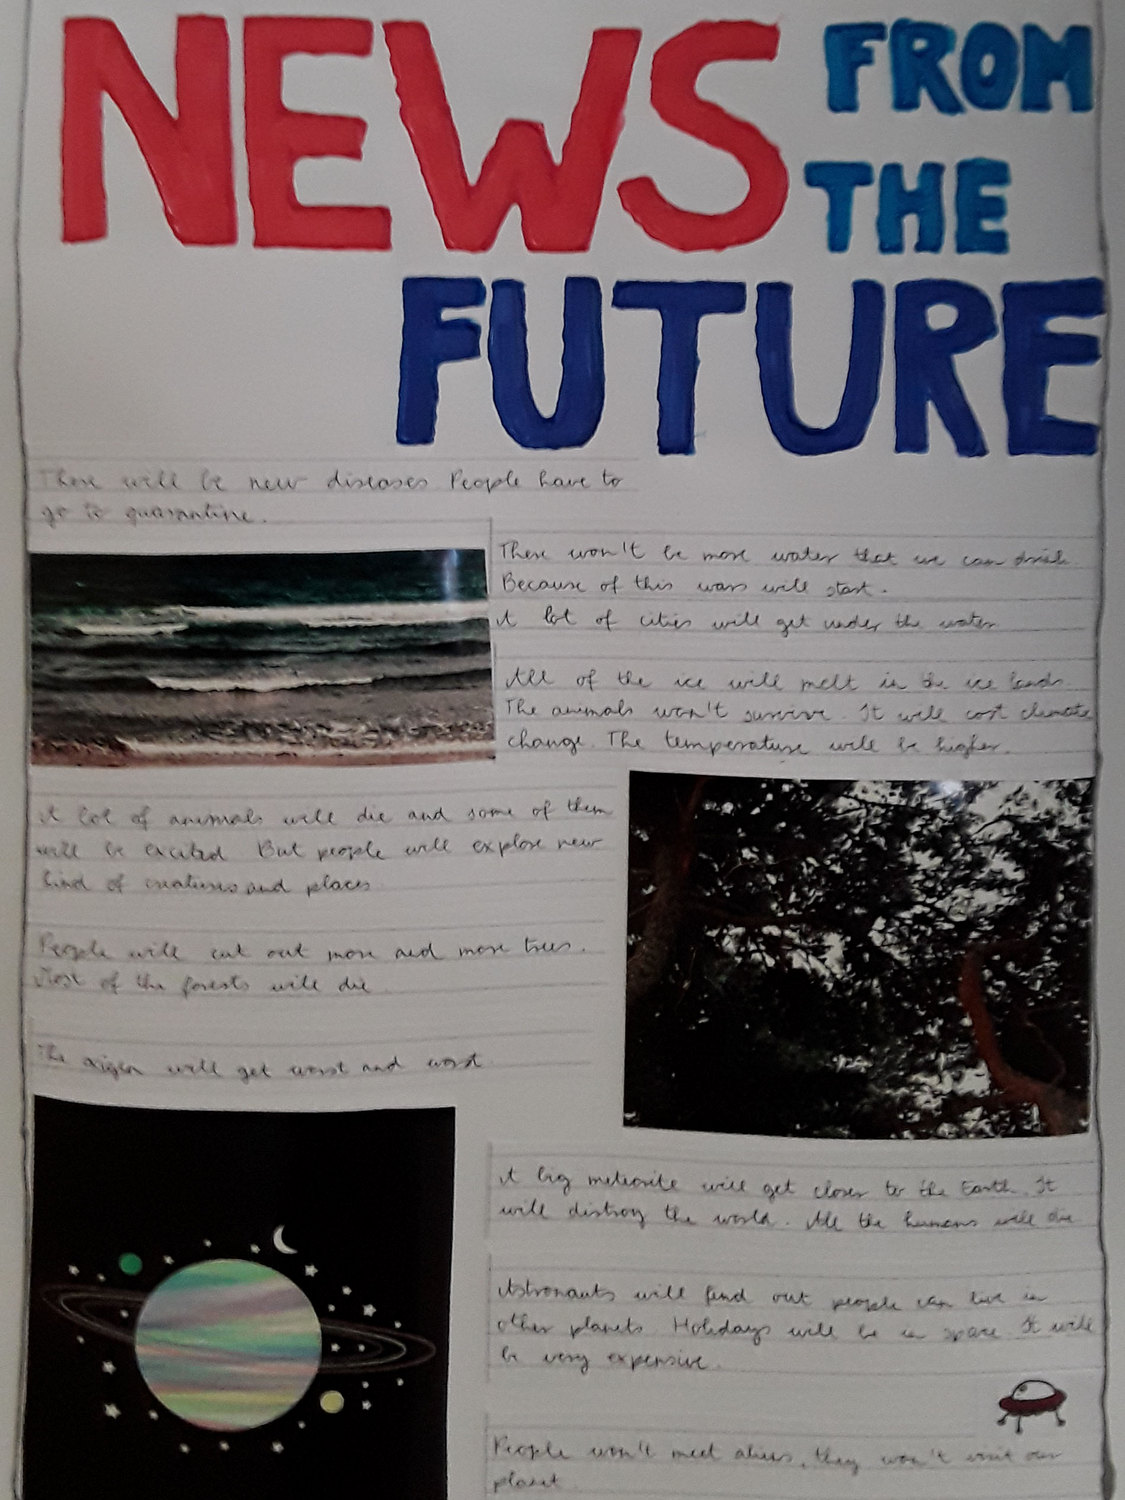 NEWS FROM
THE
FUTURE
There will be new diseases. People have to
go to quarantine.
There won't be more water that we can drink.
Because of this wars will start.
A lot of cities will get under the water.
All of the ice will melt in the ice lands.
The animals won't survive. It will cost climate
change. The temperature will be higher.
A lot of animals will die and some of them
will be excited. But people will explore new
kind of creatures and places.
People will cut out more and more trees.
Most of the forests will die.
The oxigen will get worst and worst.
A big meteorite will get closer to the Earth. It
will distroy the world. All the humans will die
Astronauts will find out people can live in
other planets. Holidays will be in space. It will
be very expensive.
People won't meet aliens, they won't visit our
planet.